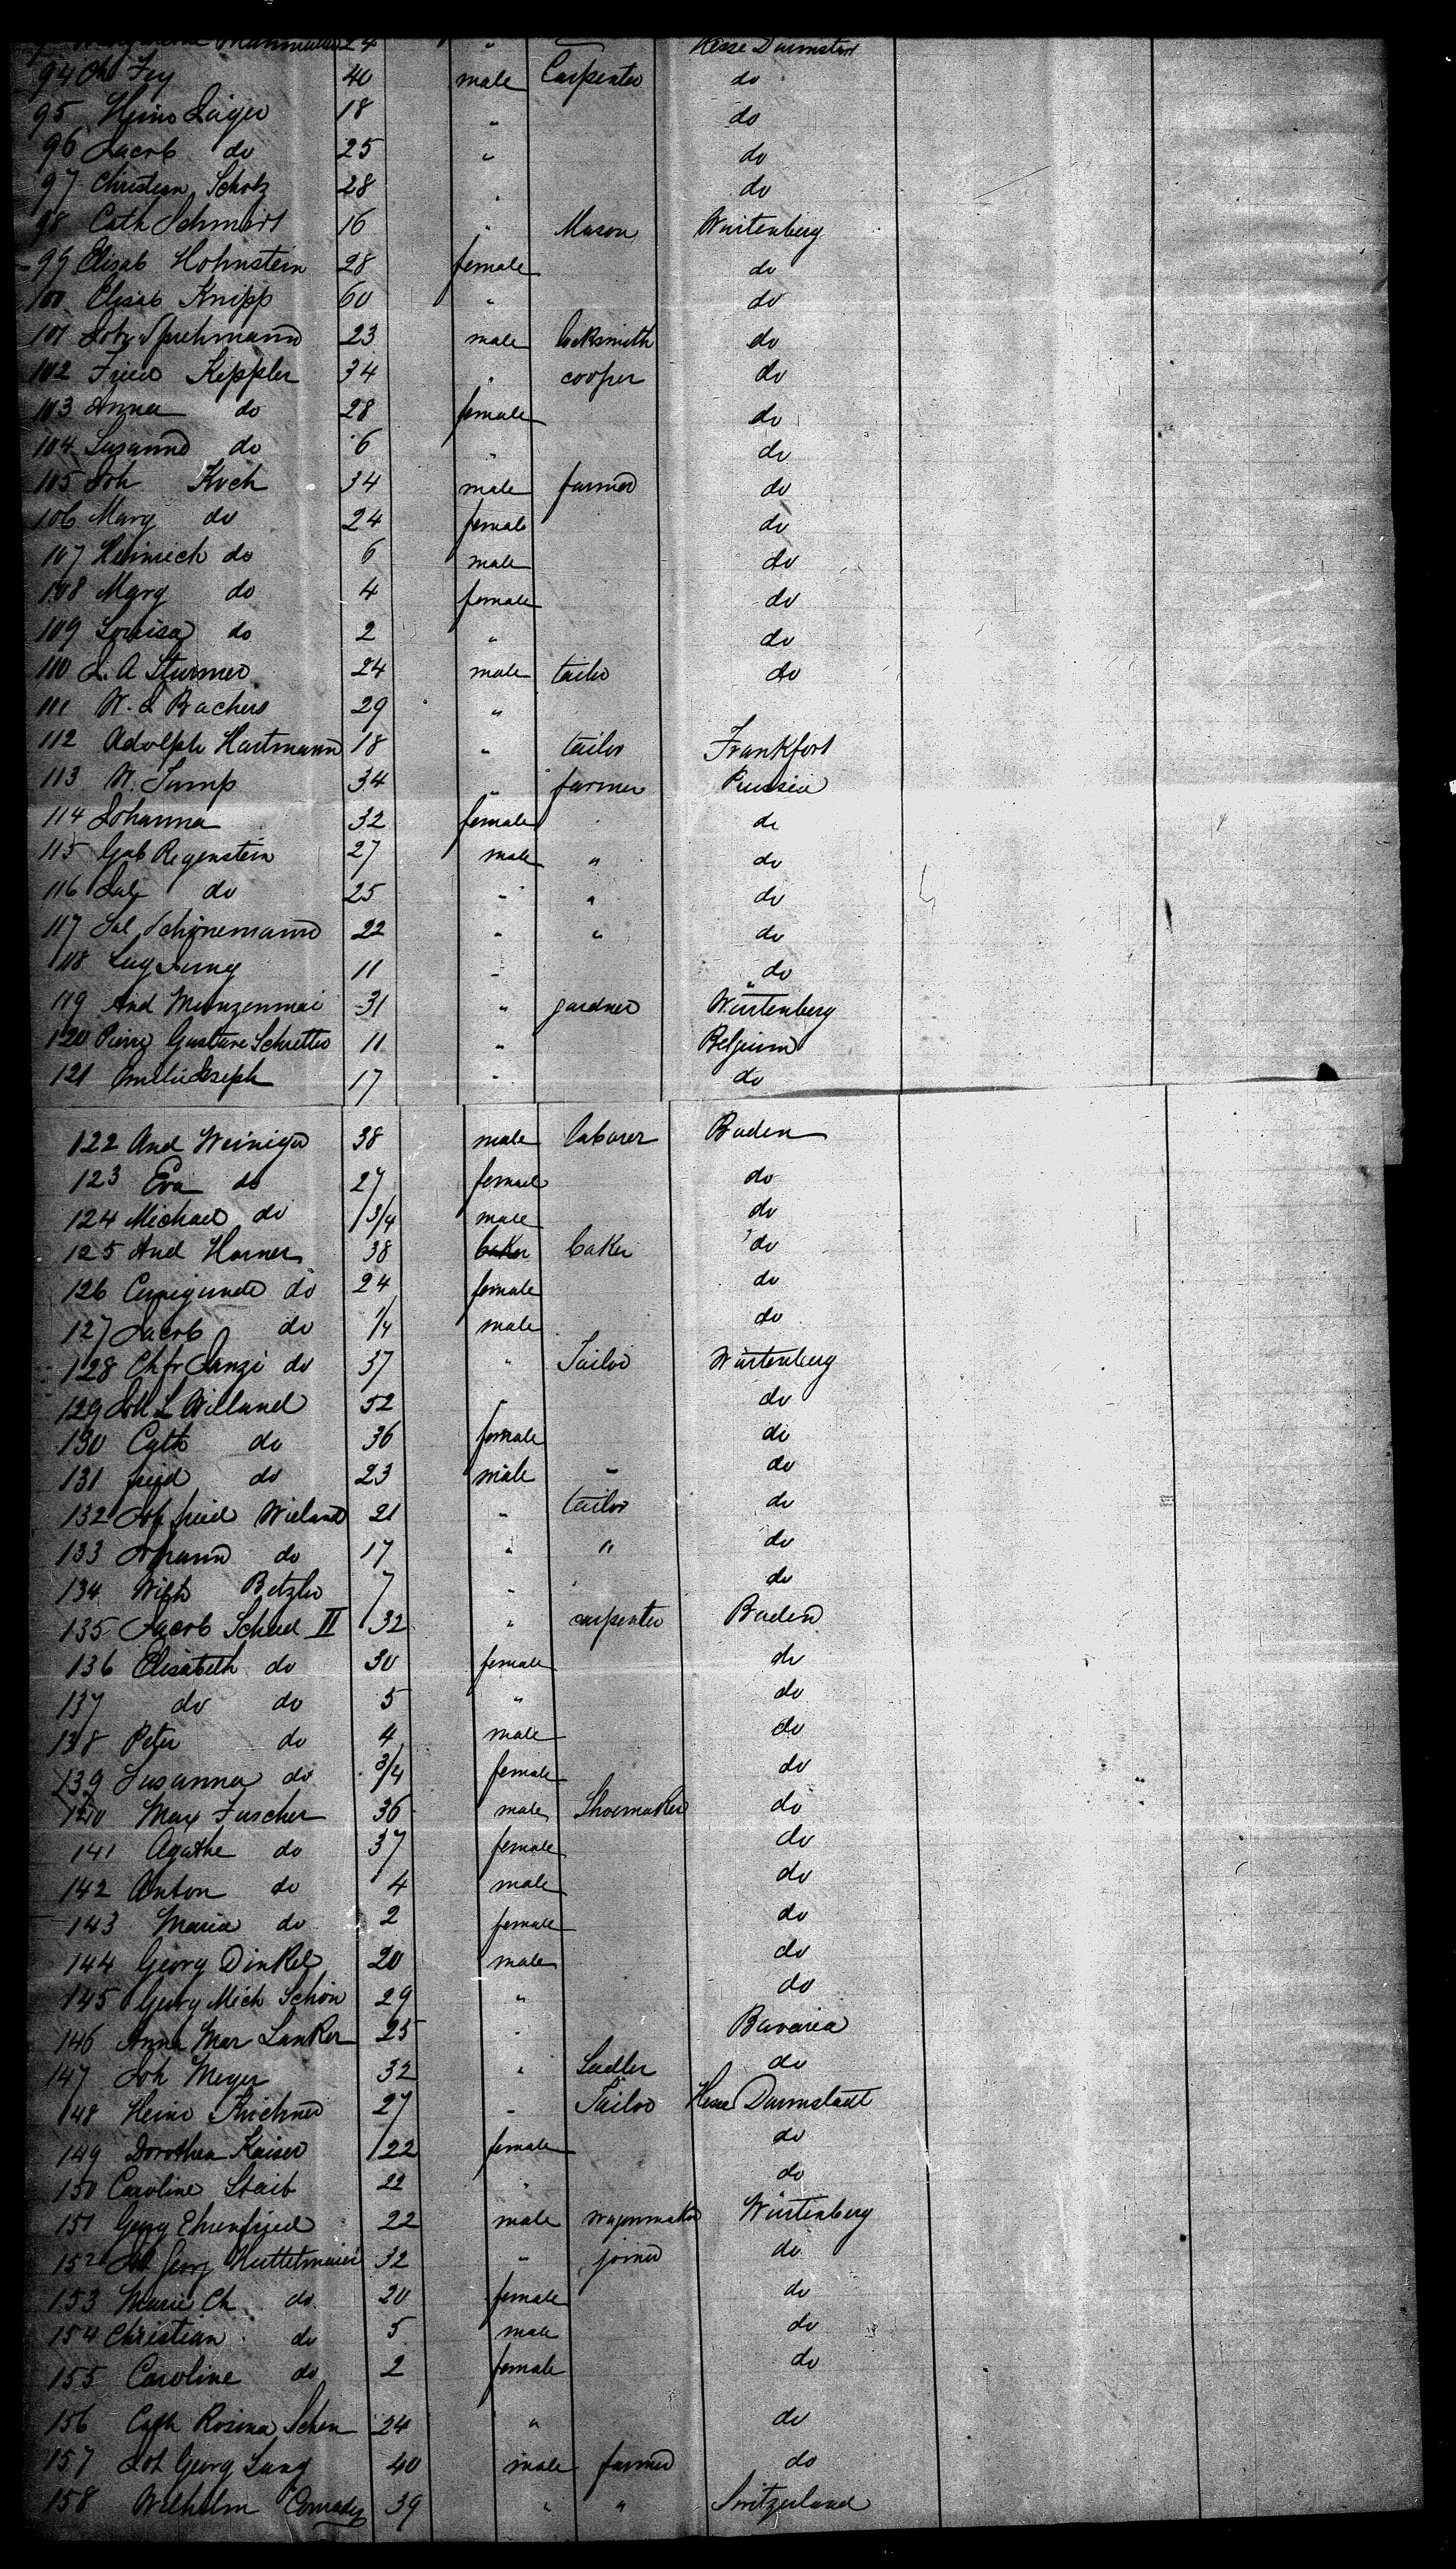 24 " Hesse Darmstadt
94 Ch Fey 40 male Carpenter do
95 Heinr 18 " do
96 Jacob do 25 " do
97 Christian Scholz 28 " do
98 Cath Schmidt 16 " Mason Würtenberg
99 Elisab Hohnstein 28 female do
100 Elisab Knipp 60 " do
101 Joh Spuhmann 23 male locksmith do
102 Fried Keppler 34 " cooper do
103 Anna do 28 female do
104 Susanna do 6 " do
105 Joh Koch 34 male farmer do
106 Marg do 24 female do
107 Heinrich do 6 male do
108 Marg do 4 female do
109 Louisa do 2 " do
110 J. A Sturmer 24 male tailor do
111 W. J Bachers 29 "
112 Adolph Hartmann 18 " tailor Frankfort
113 W. 34 " farmer Prussia
114 Johanna 32 female do
115 Gab Regenstein 27 male " do
116 Sal do 25 " " do
117 Sal Schönemann 22 " " do
118 11 " do
119 And Munzenmai 31 " gardner Würtenberg
120 Pierre Gustave 11 " Belgium
121 Joseph 17 " do
122 And Weiniger 38 male laborer Baden
123 Eva do 27 female do
124 Michael do 1 3/4 male do
125 And Horner 38 baker baker do
126 Cunigunde do 24 female do
127 Jacob do 1/4 male do
128 Chfr do 37 " Tailor Würtenberg
129 Joh L Willand 52 " do
130 Cath do 36 female do
131 fried do 23 male " do
132 Joh fried Wieland 21 " tailor do
133 Johann do 17 " " do
134 Wilh Betzler 7 " do
135 Jacob Scheed II 32 " carpenter Baden
136 Elisabeth do 30 female do
137 do do 5 " do
138 Peter do 4 male do
139 Susanna do 3/4 female do
140 Max Fuscher 36 male Shoemaker do
141 Agathe do 37 female do
142 Anton do 4 male do
143 Maria do 2 female do
144 Georg Dinkel 20 male do
145 Georg Mich Schön 29 " do
146 Anna Mar Lanker 25 " Bavaria
147 Joh Meyer 32 " Sadler do
148 Heinr Kirchner 27 " Tailor Hesse Darmstadt
149 Dorothea Kaiser 22 female do
150 Caroline Staib 22 " do
151 Georg Ehrenfried 22 male wagonmaker Würtenberg
152 Joh Georg Huttelmaier 32 " joiner do
153 Marie Ch do 20 female do
154 Christian do 5 male do
155 Caroline do 2 female do
156 Cath Rosina Schen 24 " do
157 Joh Georg Lang 40 male farmer do
158 Wilhelm Conradz 39 " " Switzerland